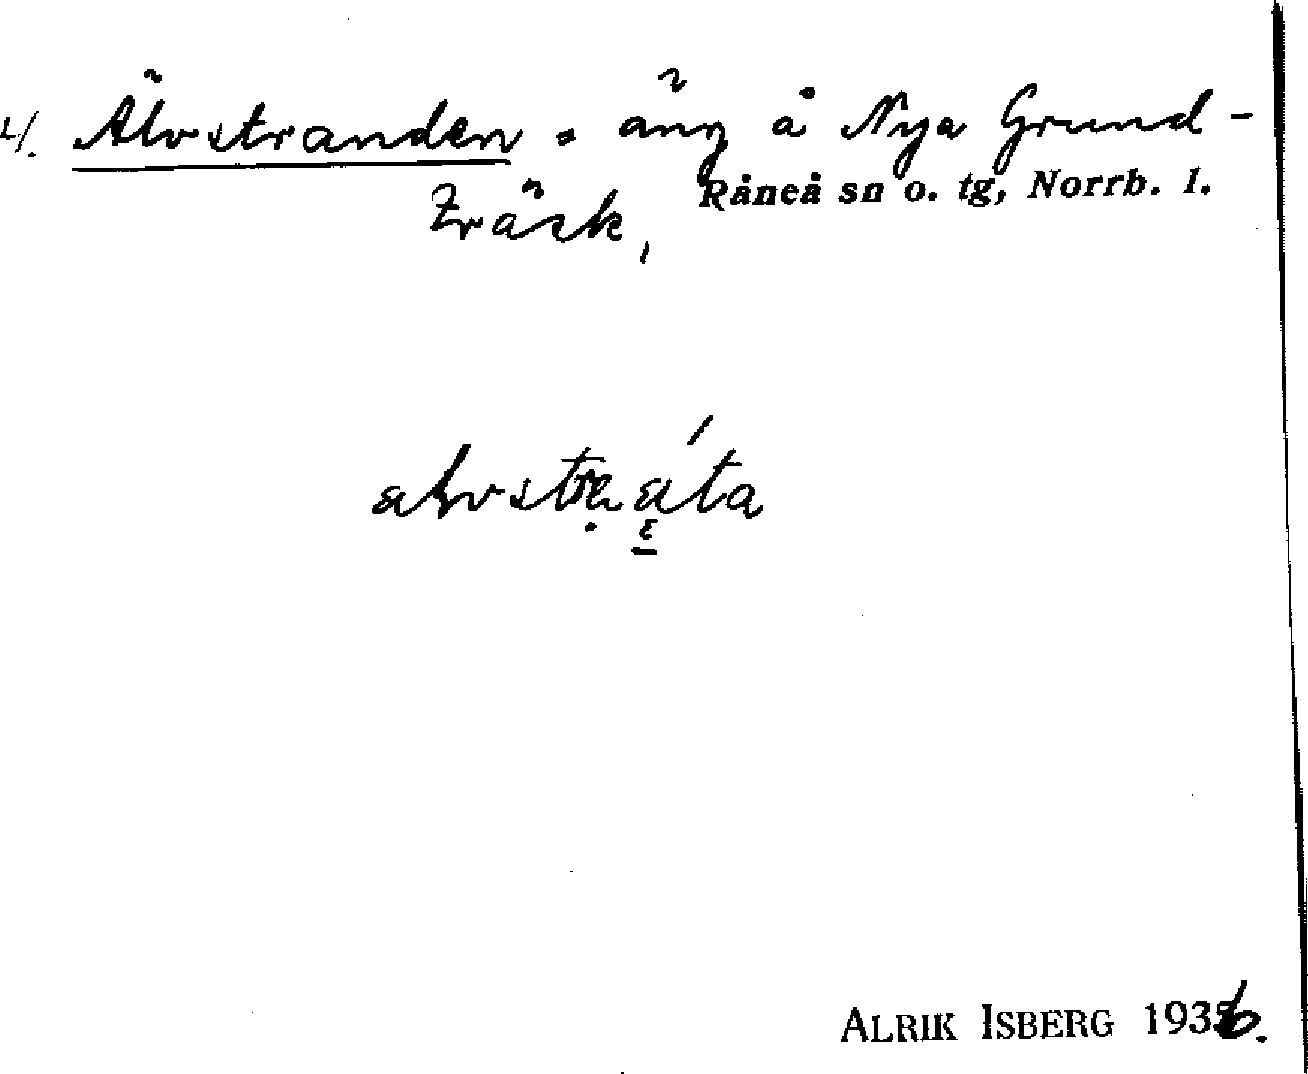 4/. Älvstranden = äng å Nya Grund-
Råneå sn o. tg, Norrb. l.
träsk,
ALRIK ISBERG 1936.